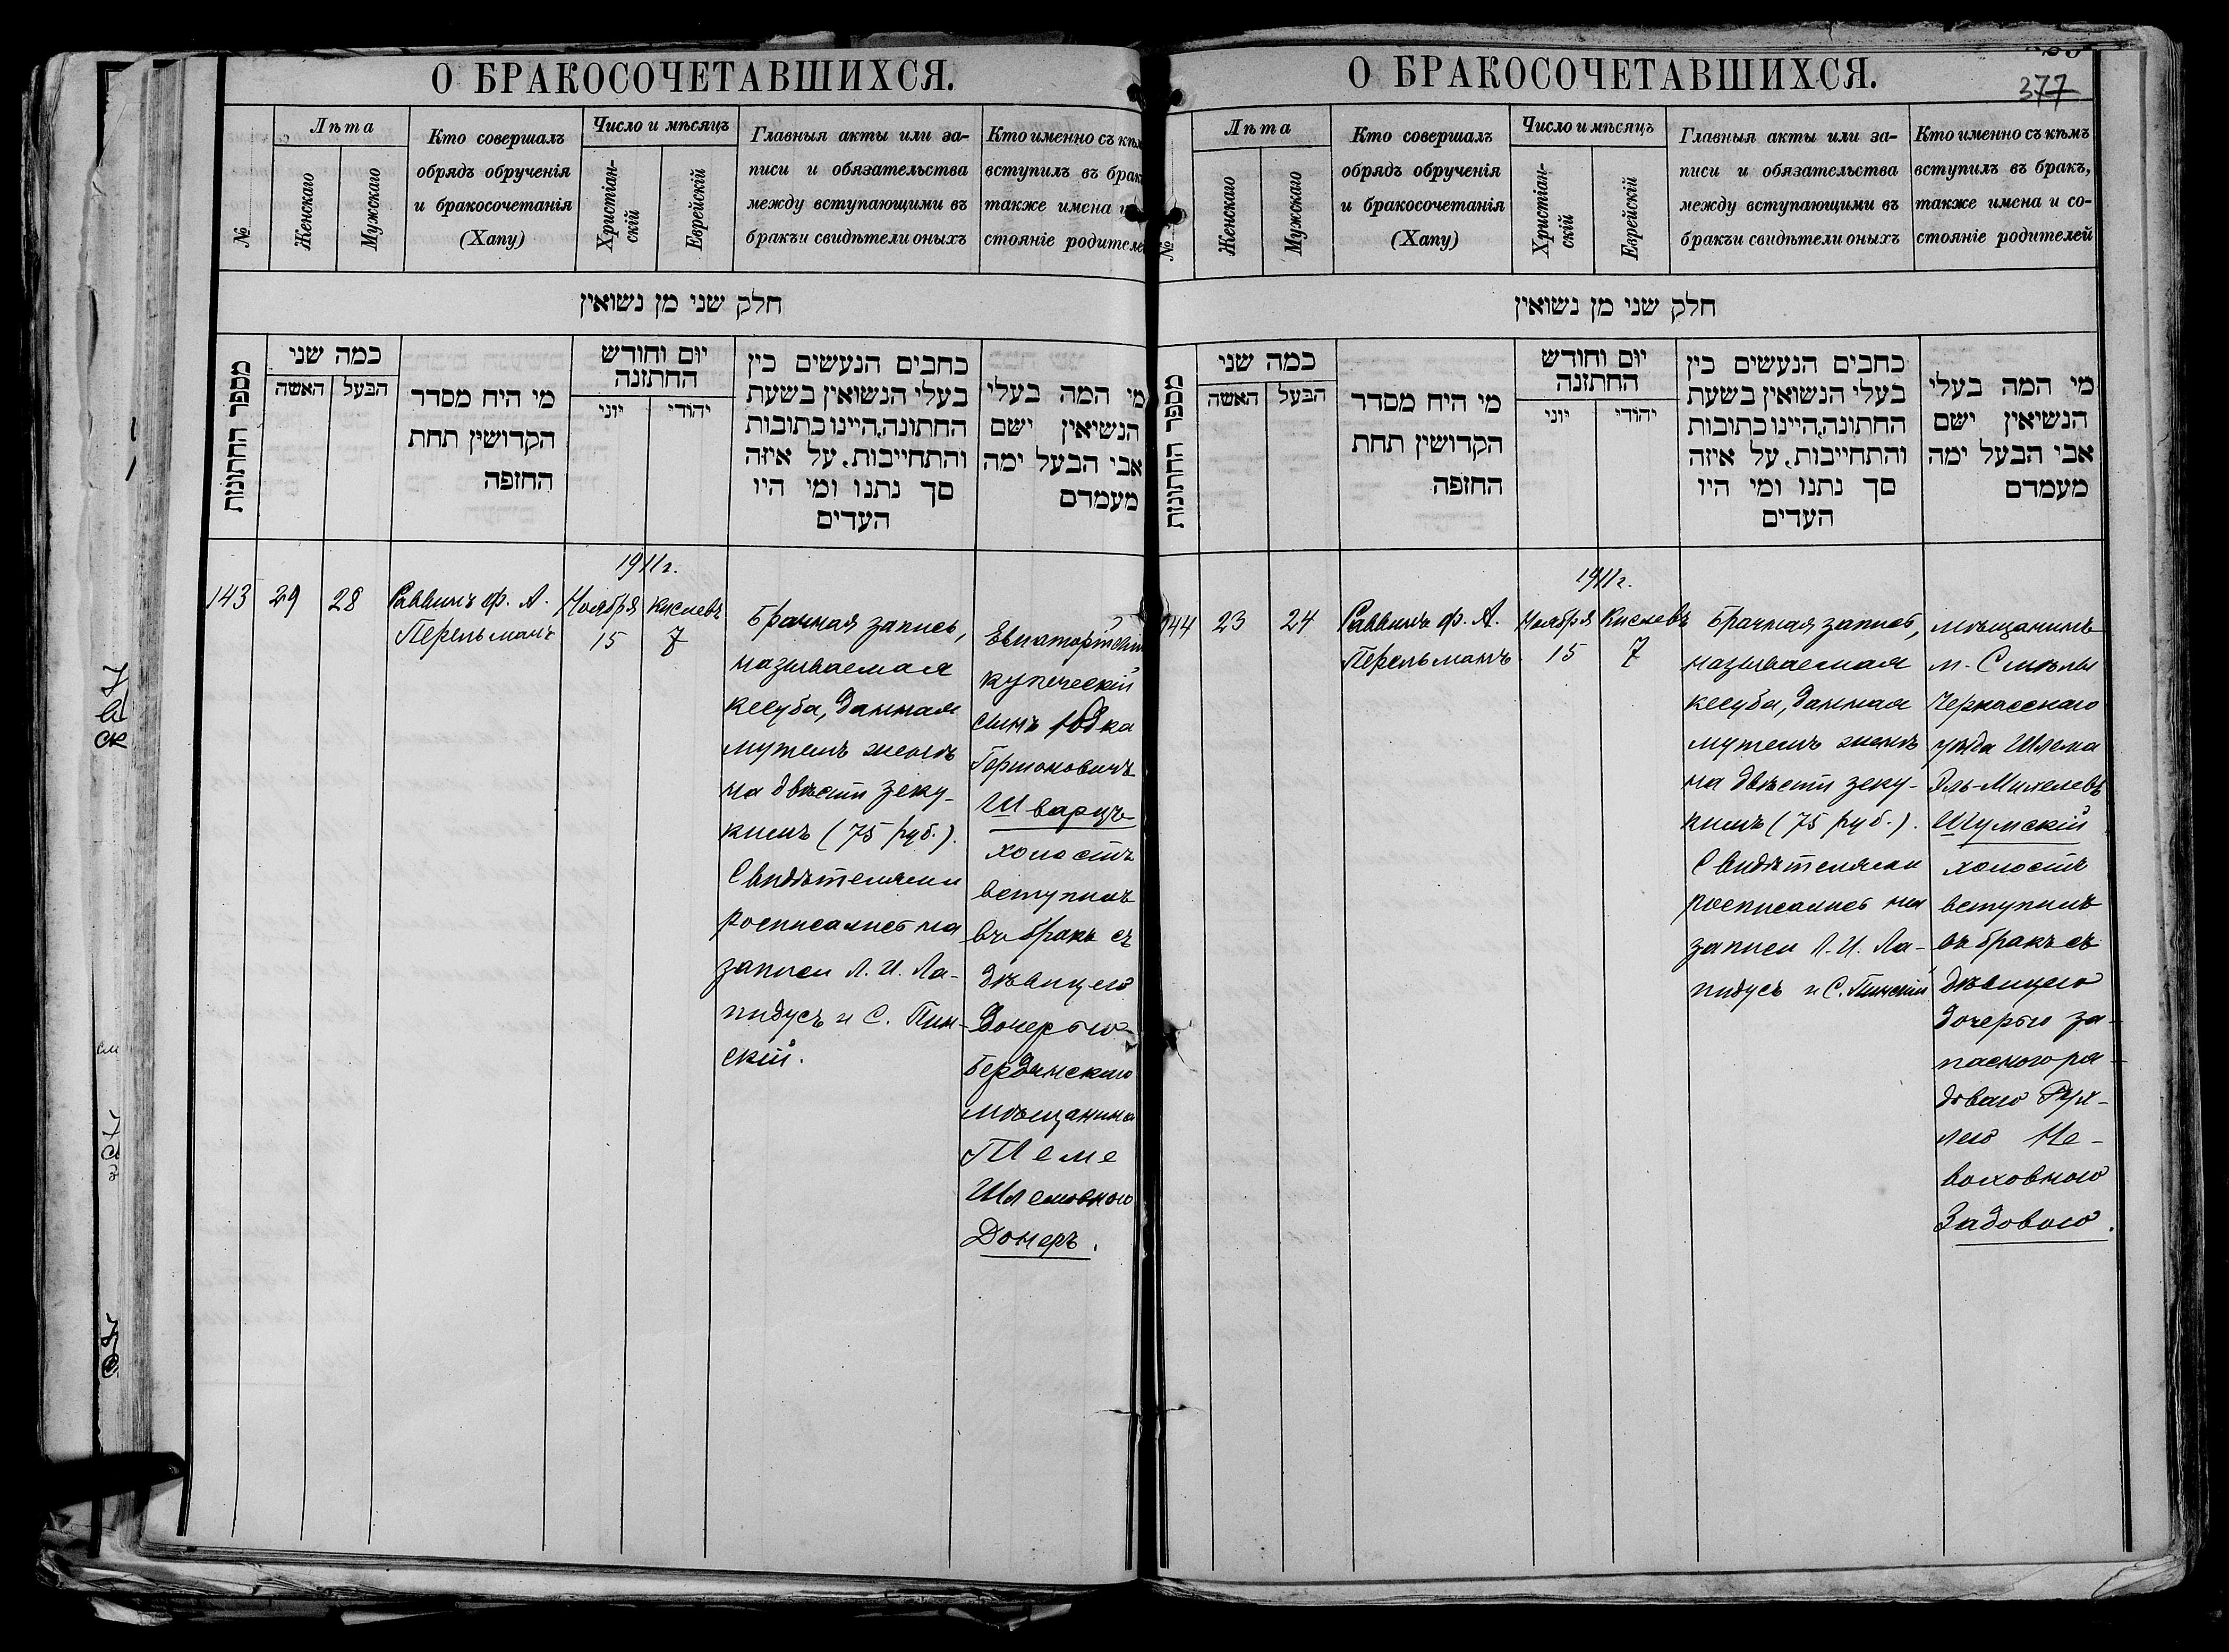 О БРАКОСОЧЕТАВШИХСЯ.
№
Лѣта
Женскаго
Мужскаго
Кто совершалъ
обрядъ обрученія
и бракосочетанія
(Хапу)
Число и мѣсяцъ
Христіан-
скій
Еврейскій
Главныя акты или за-
писи и обязательства
между вступающими въ
бракъ и свидѣтели оныхъ
Кто именно съ
вступилъ въ брак
также имена и
стояніе родителе
חלק שני מן נשואין
מספר החתונות
כמה שני
האשה
הבעל
מי היח מסדר
הקדושין תחת
החופה
יום וחודש
החתונה
יוני
יהודי
כתבים הנעשים בין
בעלי הנשואין בשעת
החתונה, היינו כתובות
והתחייבות, על איזה
סך נתנו ומי היו
העדים
מי המה בעלי
הנשיאין ישם
אבי הבעל ימה
מעמדם
1911 г.
143
29
28
Раввинъ Ф. А.
Перельманъ
Ноября
15
Кислевъ
7
Брачная запись,
называемая
кесуба, данная
мужемъ женѣ
на двѣсти зеку-
кимъ (75 руб.).
Свидѣтелями
росписались на
записи Л. И. Ла-
пидусъ и С. Пин-
скій.
Евпаторійскій
купеческій
сынъ Юдка
Горионовичъ
Шварцъ
холостъ
вступилъ
въ бракъ съ
дѣвицею
дочерью
Бердянскаго
мѣщанина
Шлемовною
Донеръ.
О БРАКОСОЧЕТАВШИХСЯ.
377
№
Лѣта
Женскаго
Мужскаго
Кто совершалъ
обрядъ обрученія
и бракосочетанія
(Хапу)
Число и мѣсяцъ
Христіан-
скій
Еврейскій
Главныя акты или за-
писи и обязательства
между вступающими въ
бракъ и свидѣтели оныхъ
Кто именно съ кѣмъ
вступилъ въ бракъ,
также имена и со-
стояніе родителей
חלק שני מן נשואין
מספר החתונות
כמה שני
האשה
הבעל
מי היח מסדר
הקדושין תחת
החופה
יום וחודש
החתונה
יוני
יהודי
כתבים הנעשים בין
בעלי הנשואין בשעת
החתונה, היינו כתובות
והתחייבות, על איזה
סך נתנו ומי היו
העדים
מי המה בעלי
הנשיאין ישם
אבי הבעל ימה
מעמדם
1911 г.
144
23
24
Раввинъ Ф. А.
Перельманъ
Ноября
15
Кислевъ
7
Брачная запись,
называемая
кесуба, данная
мужемъ женѣ
на двѣсти зеку-
кимъ (75 руб.).
Свидѣтелями
росписались на
записи Л. И. Ла-
пидусъ и С. Пинскій
мѣщанинъ
м. Смѣлы
Черкасскаго
уѣзда Шлема
Эль-Михелевъ
Шумскій
холостъ
вступилъ
въ бракъ съ
дѣвицею
дочерью за-
паснаго ря-
доваго Рух-
лею Не-
воховною
Задовою.